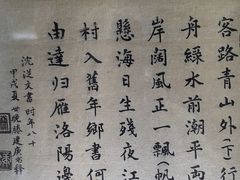 客路青山外
舟緑水前潮平兩
岸阔風正一飄帆
懸海日生殘夜江
村入舊年鄉書何
由達归雁洛陽邊
沈從文書 时年八十
甲戌夏 世晚滕建庚